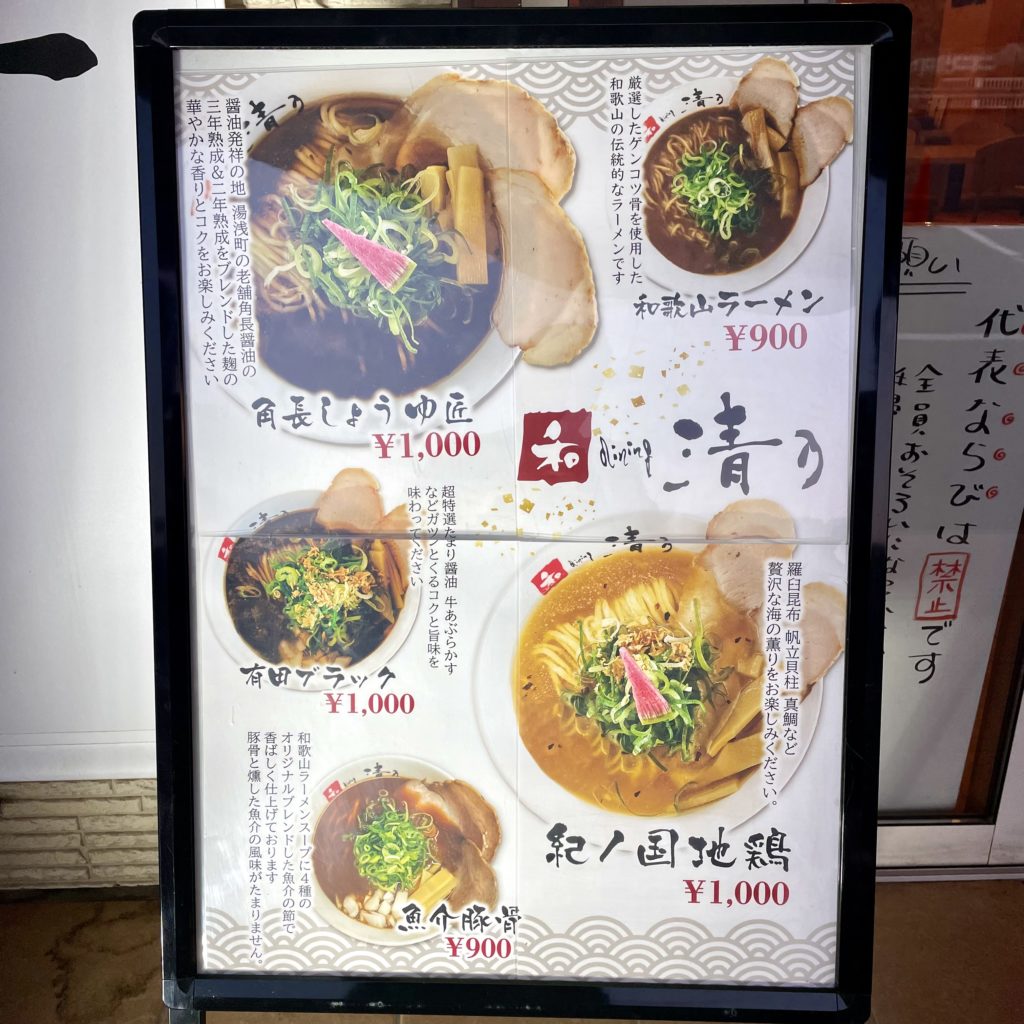 清乃
醤油発祥の地 湯浅町の老舗角長醤油の
三年熟成&二年熟成をブレンドした麹の
華やかな香りとコクをお楽しみください
角長しょうゆ匠
¥1,000
厳選したゲンコツ骨を使用した
和歌山の伝統的なラーメンです
和 dining 清乃
和歌山ラーメン
¥900
和 dining 清乃
超特選たまり醤油 牛あぶらかす
などガツンとくるコクと旨味を
味わってください
和 清乃
有田ブラック
¥1,000
羅臼昆布 帆立貝柱 真鯛など
贅沢な海の薫りをお楽しみください。
和 dining 清乃
紀ノ国地鶏
¥1,000
和歌山ラーメンスープに4種の
オリジナルブレンドした魚介の節で
香ばしく仕上げております
豚骨と燻した魚介の風味がたまりません。
和 dining 清乃
魚介豚骨
¥900
願い
代表ならびは禁止です
全員おそろいになって